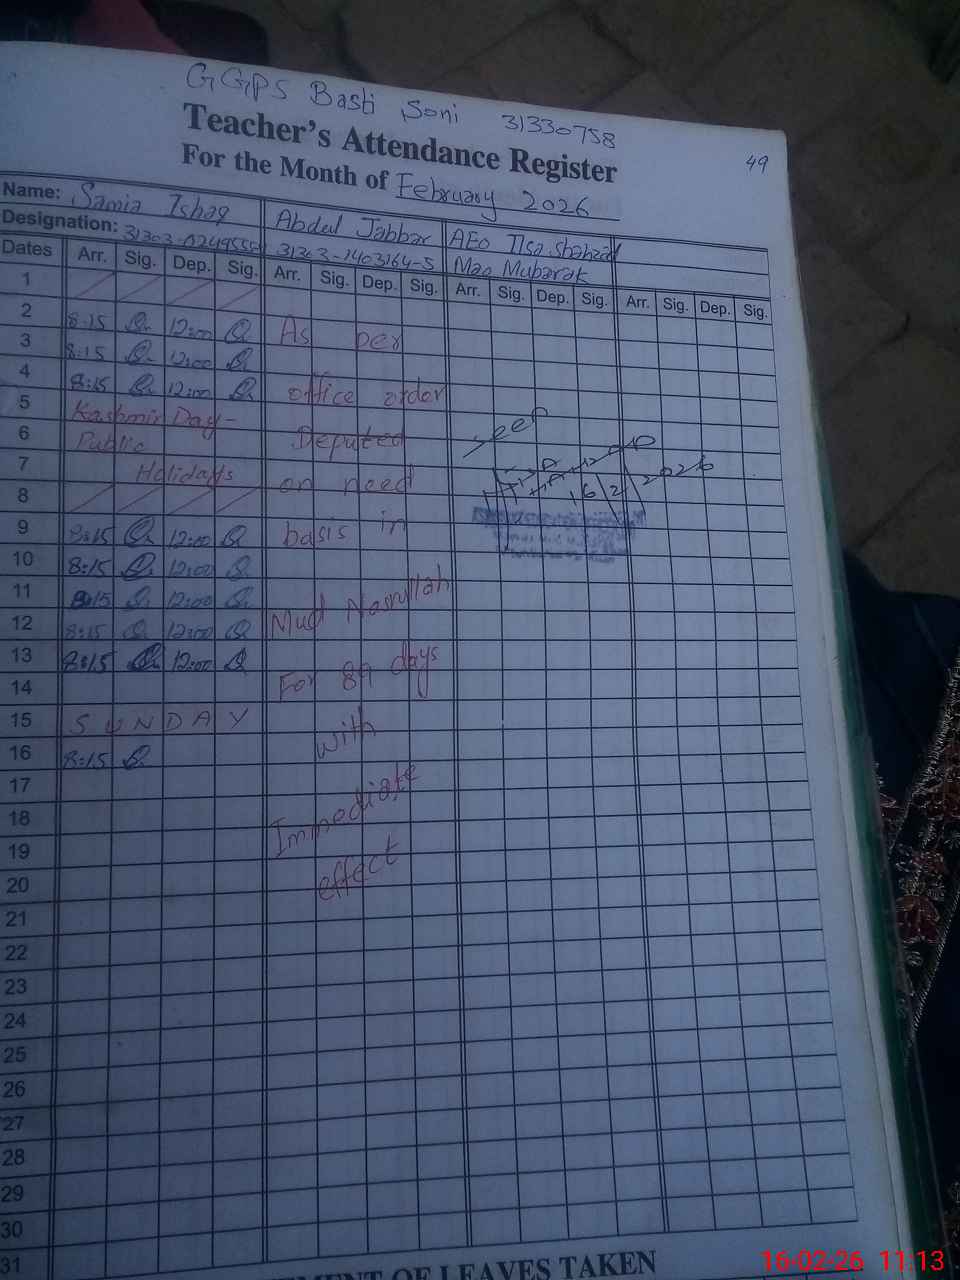 GGPS Basti Soni 31330758
49
Teacher's Attendance Register
For the Month of February 2026
Name: Samia Ishaq Abdul Jabbar AEO Ilsa Shahzad
Designation: 31303- 31303-1403164-5 Mao Mubarak
Dates Arr. Sig. Dep. Sig. Arr. Sig. Dep. Sig. Arr. Sig. Dep. Sig. Arr. Sig. Dep. Sig.
1
2 8:15 12:00 As per
3 8:15 12:00
4 8:15 12:00 office order
5 Kashmir Day - Seen
6 Public Deputed
7 Holidays on need 16/2/2026
8
9 8:15 12:00 basis in
10 8:15 12:00
11 8:15 12:00 Mud Nasrullah
12 8:15 12:00
13 8:15 12:00 For 89 days
14
15 SUNDAY with
16 8:15
17
18 Immediate
19
20 effect
21
22
23
24
25
26
27
28
29
30
31
MENT OF LEAVES TAKEN
16-02-26 11:13